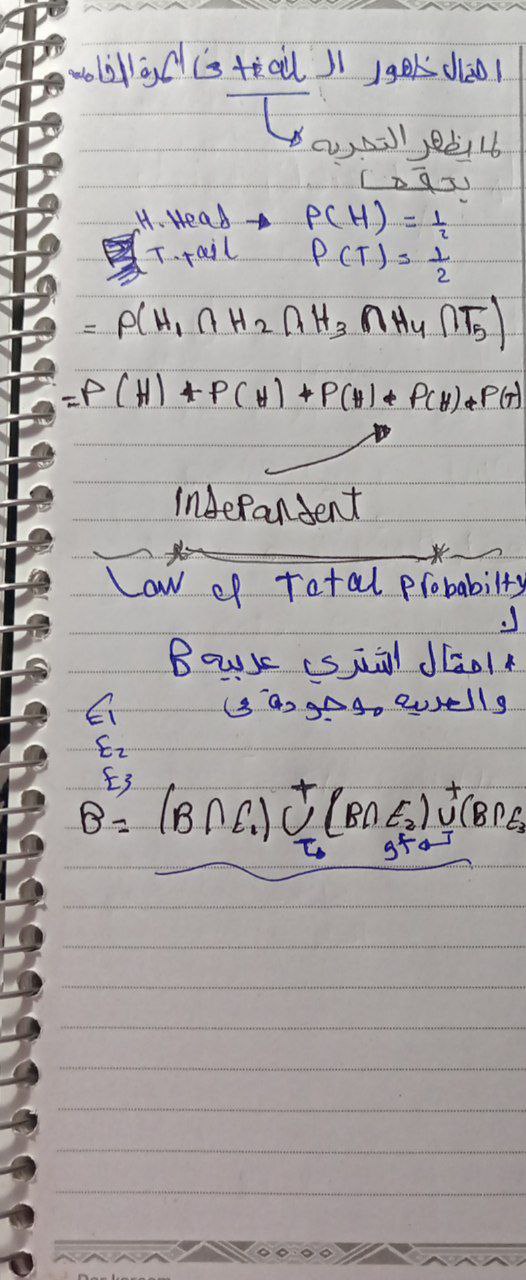 احتمال ظهور ال tail فى المرة الخامسة
لما يظهر التجربه
بحققها
H. Head → P(H) = 1/2
T. tail P(T) = 1/2
= P(H1 ∩ H2 ∩ H3 ∩ H4 ∩ T5)
= P(H) * P(H) * P(H) * P(H) * P(T)
Indepandent
Law of Total probabilty
* احتمال اشتري عربيه B
والعربيه موجودة فى
E1
E2
E3
B = (B∩E1) ∪ (B∩E2) ∪ (B∩E3
+ +